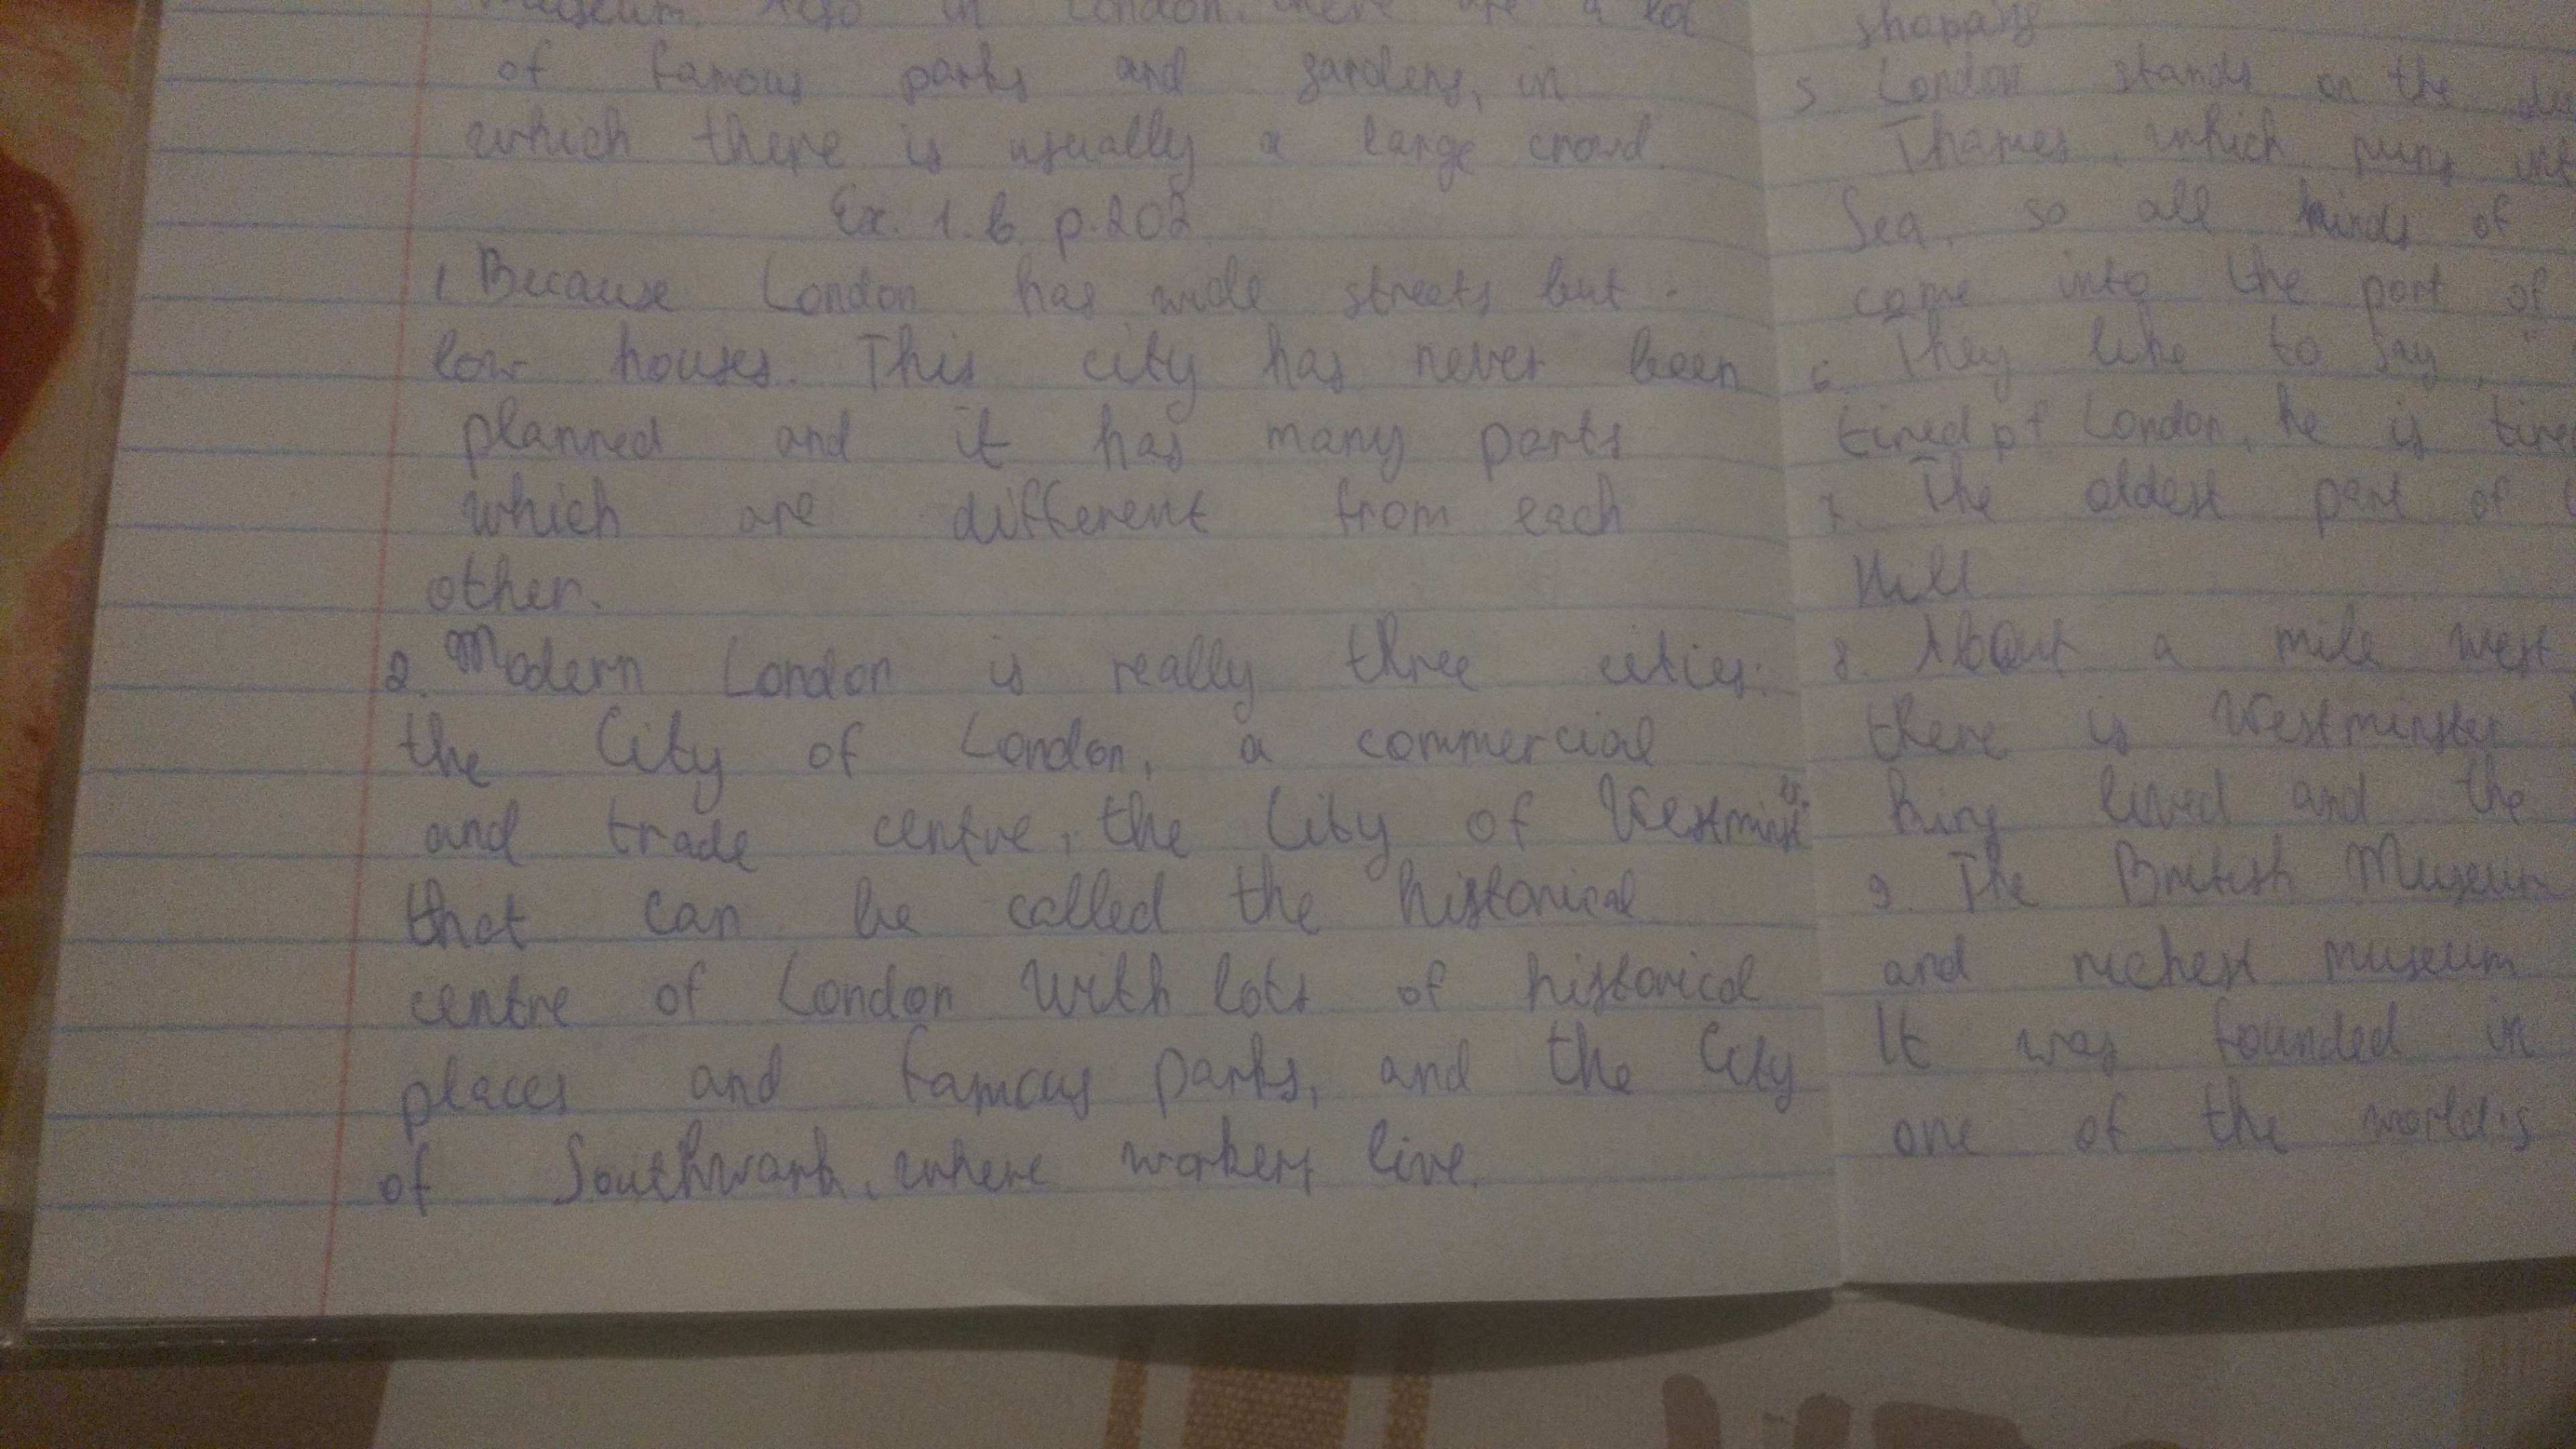 museum. Also in London, there are a lot
of famous parks and gardens, in
which there is usually a large crowd.
Ex. 1.b. p.202
1. Because London has wide streets but
low houses. This city has never been
planned and it has many parts
which are different from each
other.
2. Modern London is really three cities:
the City of London, a commercial
and trade centre, the City of Westminst
that can be called the historical
centre of London with lots of historical
places and famous parks, and the City
of Southwark, where workers live.
shopping
5 London stands on the
Thames, which runs
Sea, so all kinds of
come into the port of
6. They like to say, "
tired of London, he is
7. The oldest part of
Hill
8. About a mile west
there is Westminster
King lived and the
9. The British Museum
and richest museum
It was founded in
one of the world's